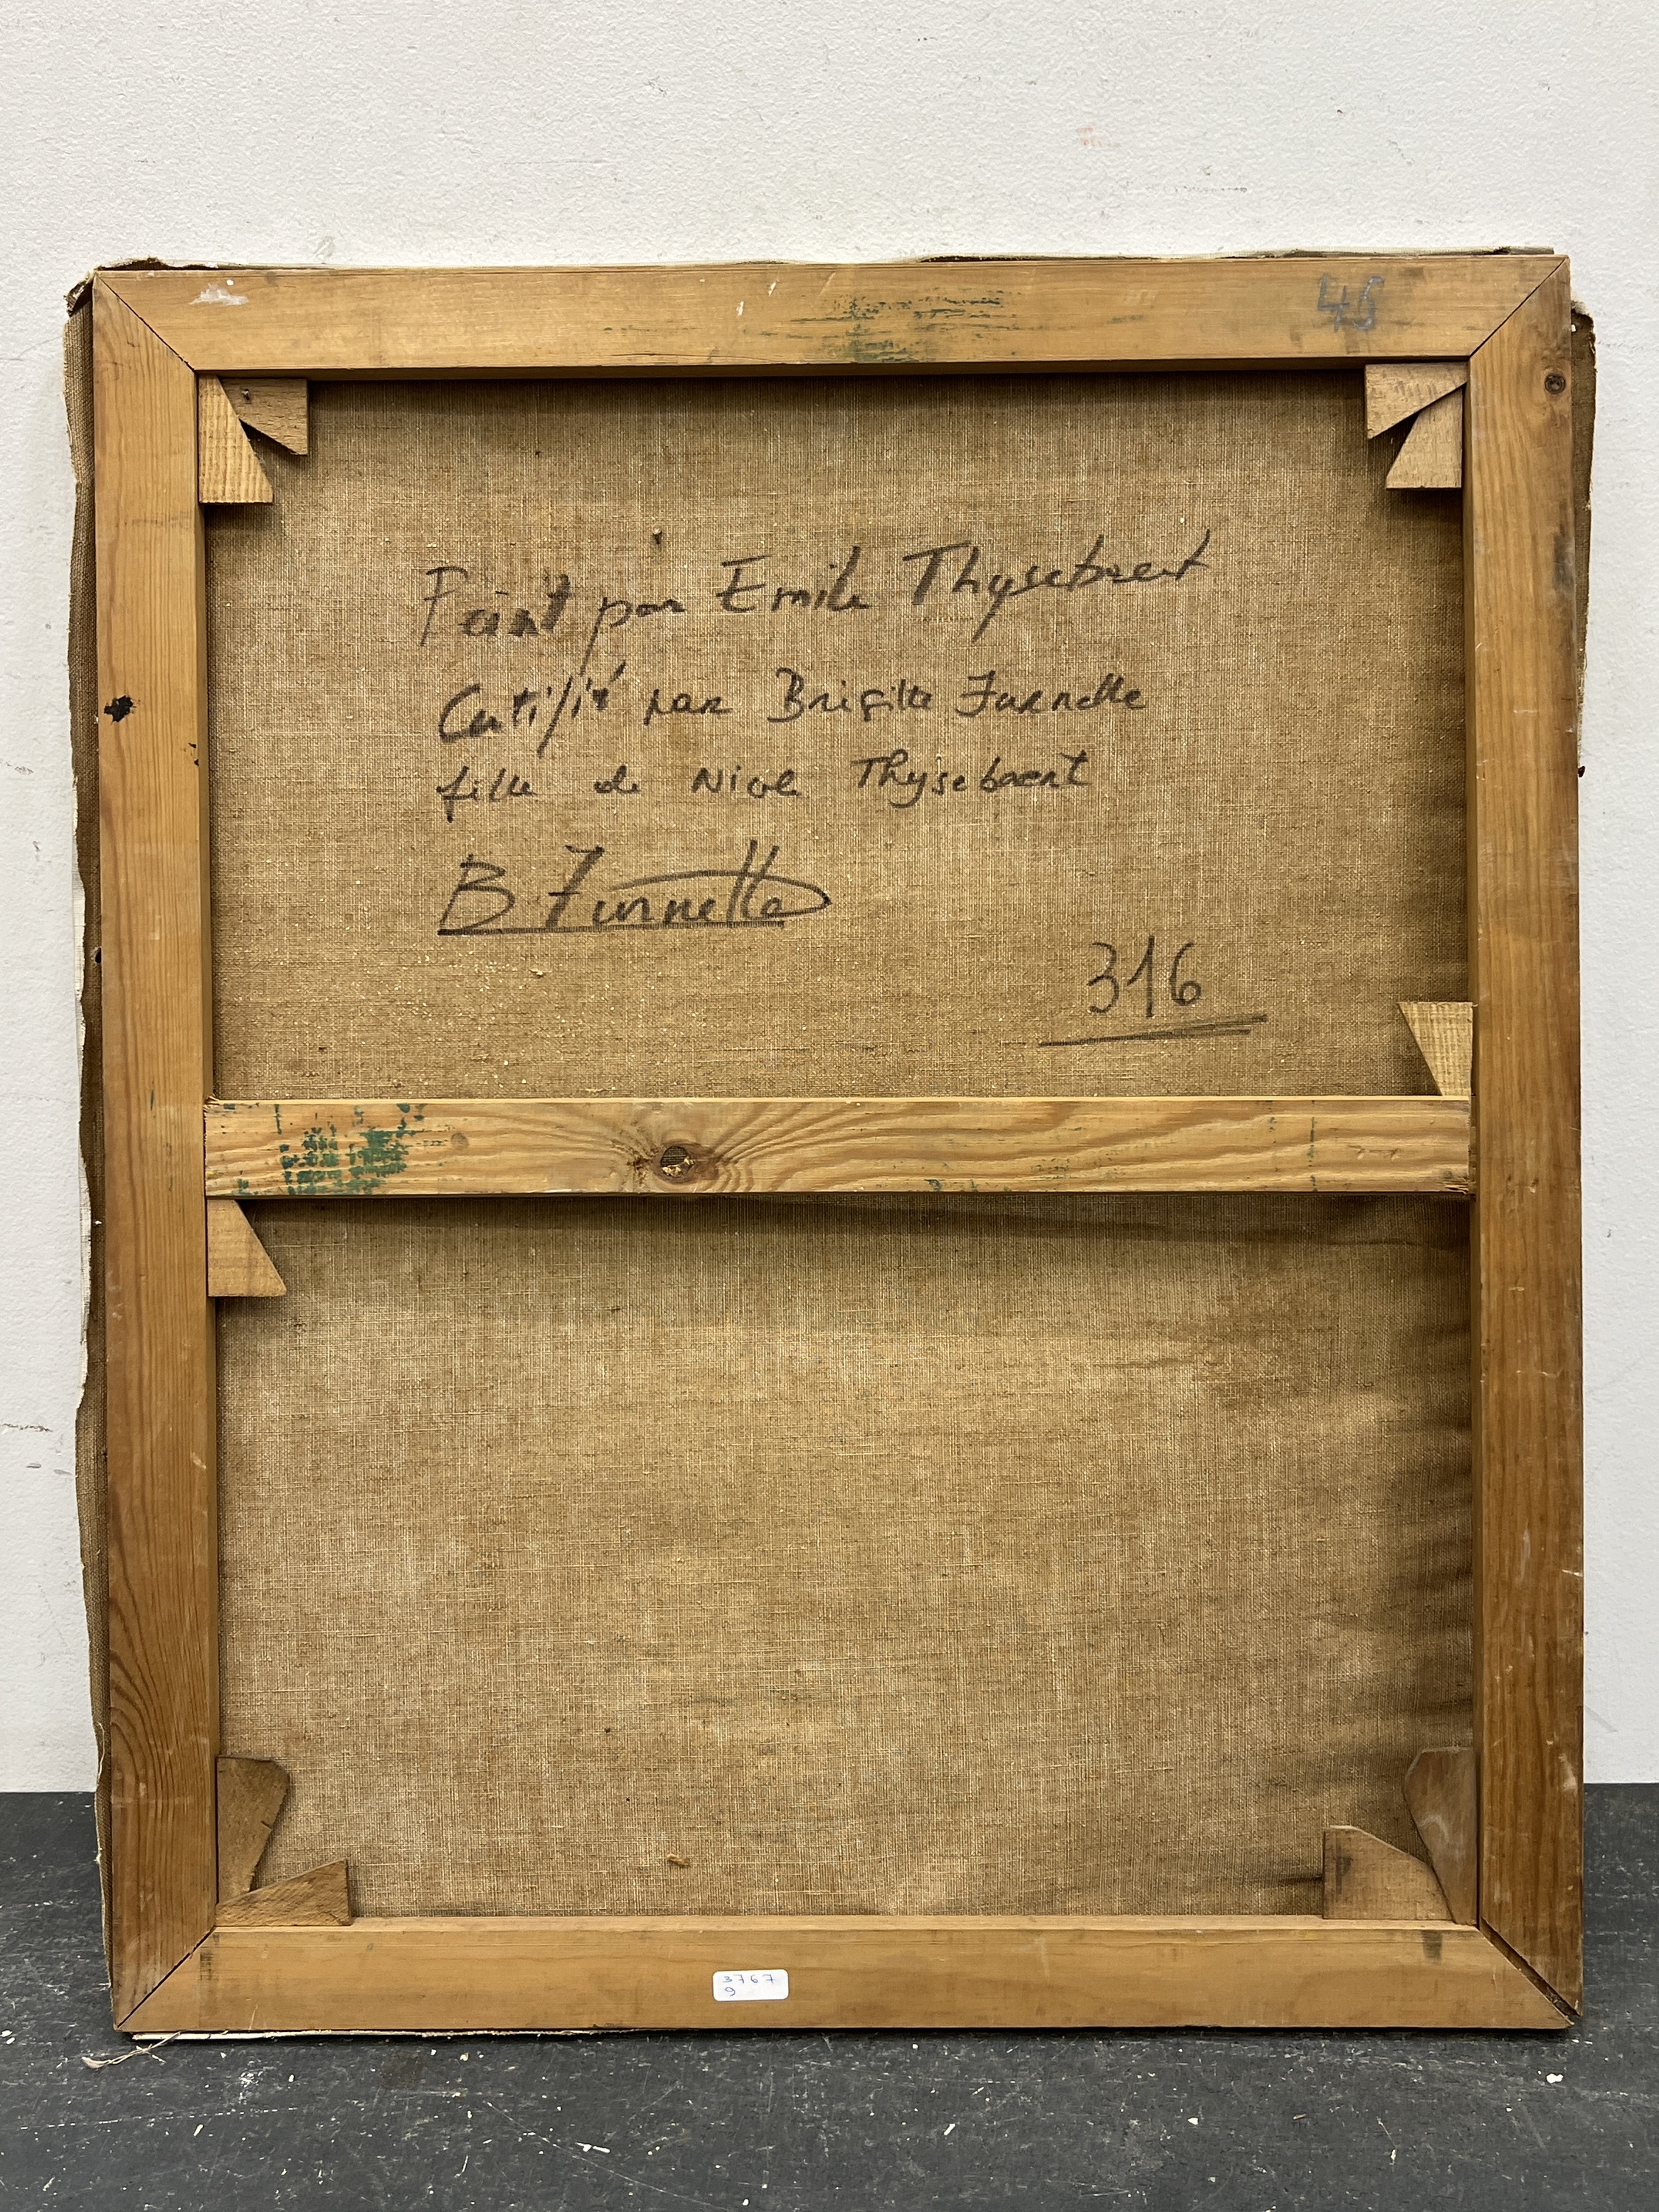 45
Peint par Emile Thysebaert
Certifié par Brigitte Furnelle
fille de Nicole Thysebaert
B Furnelle
316
3767
9